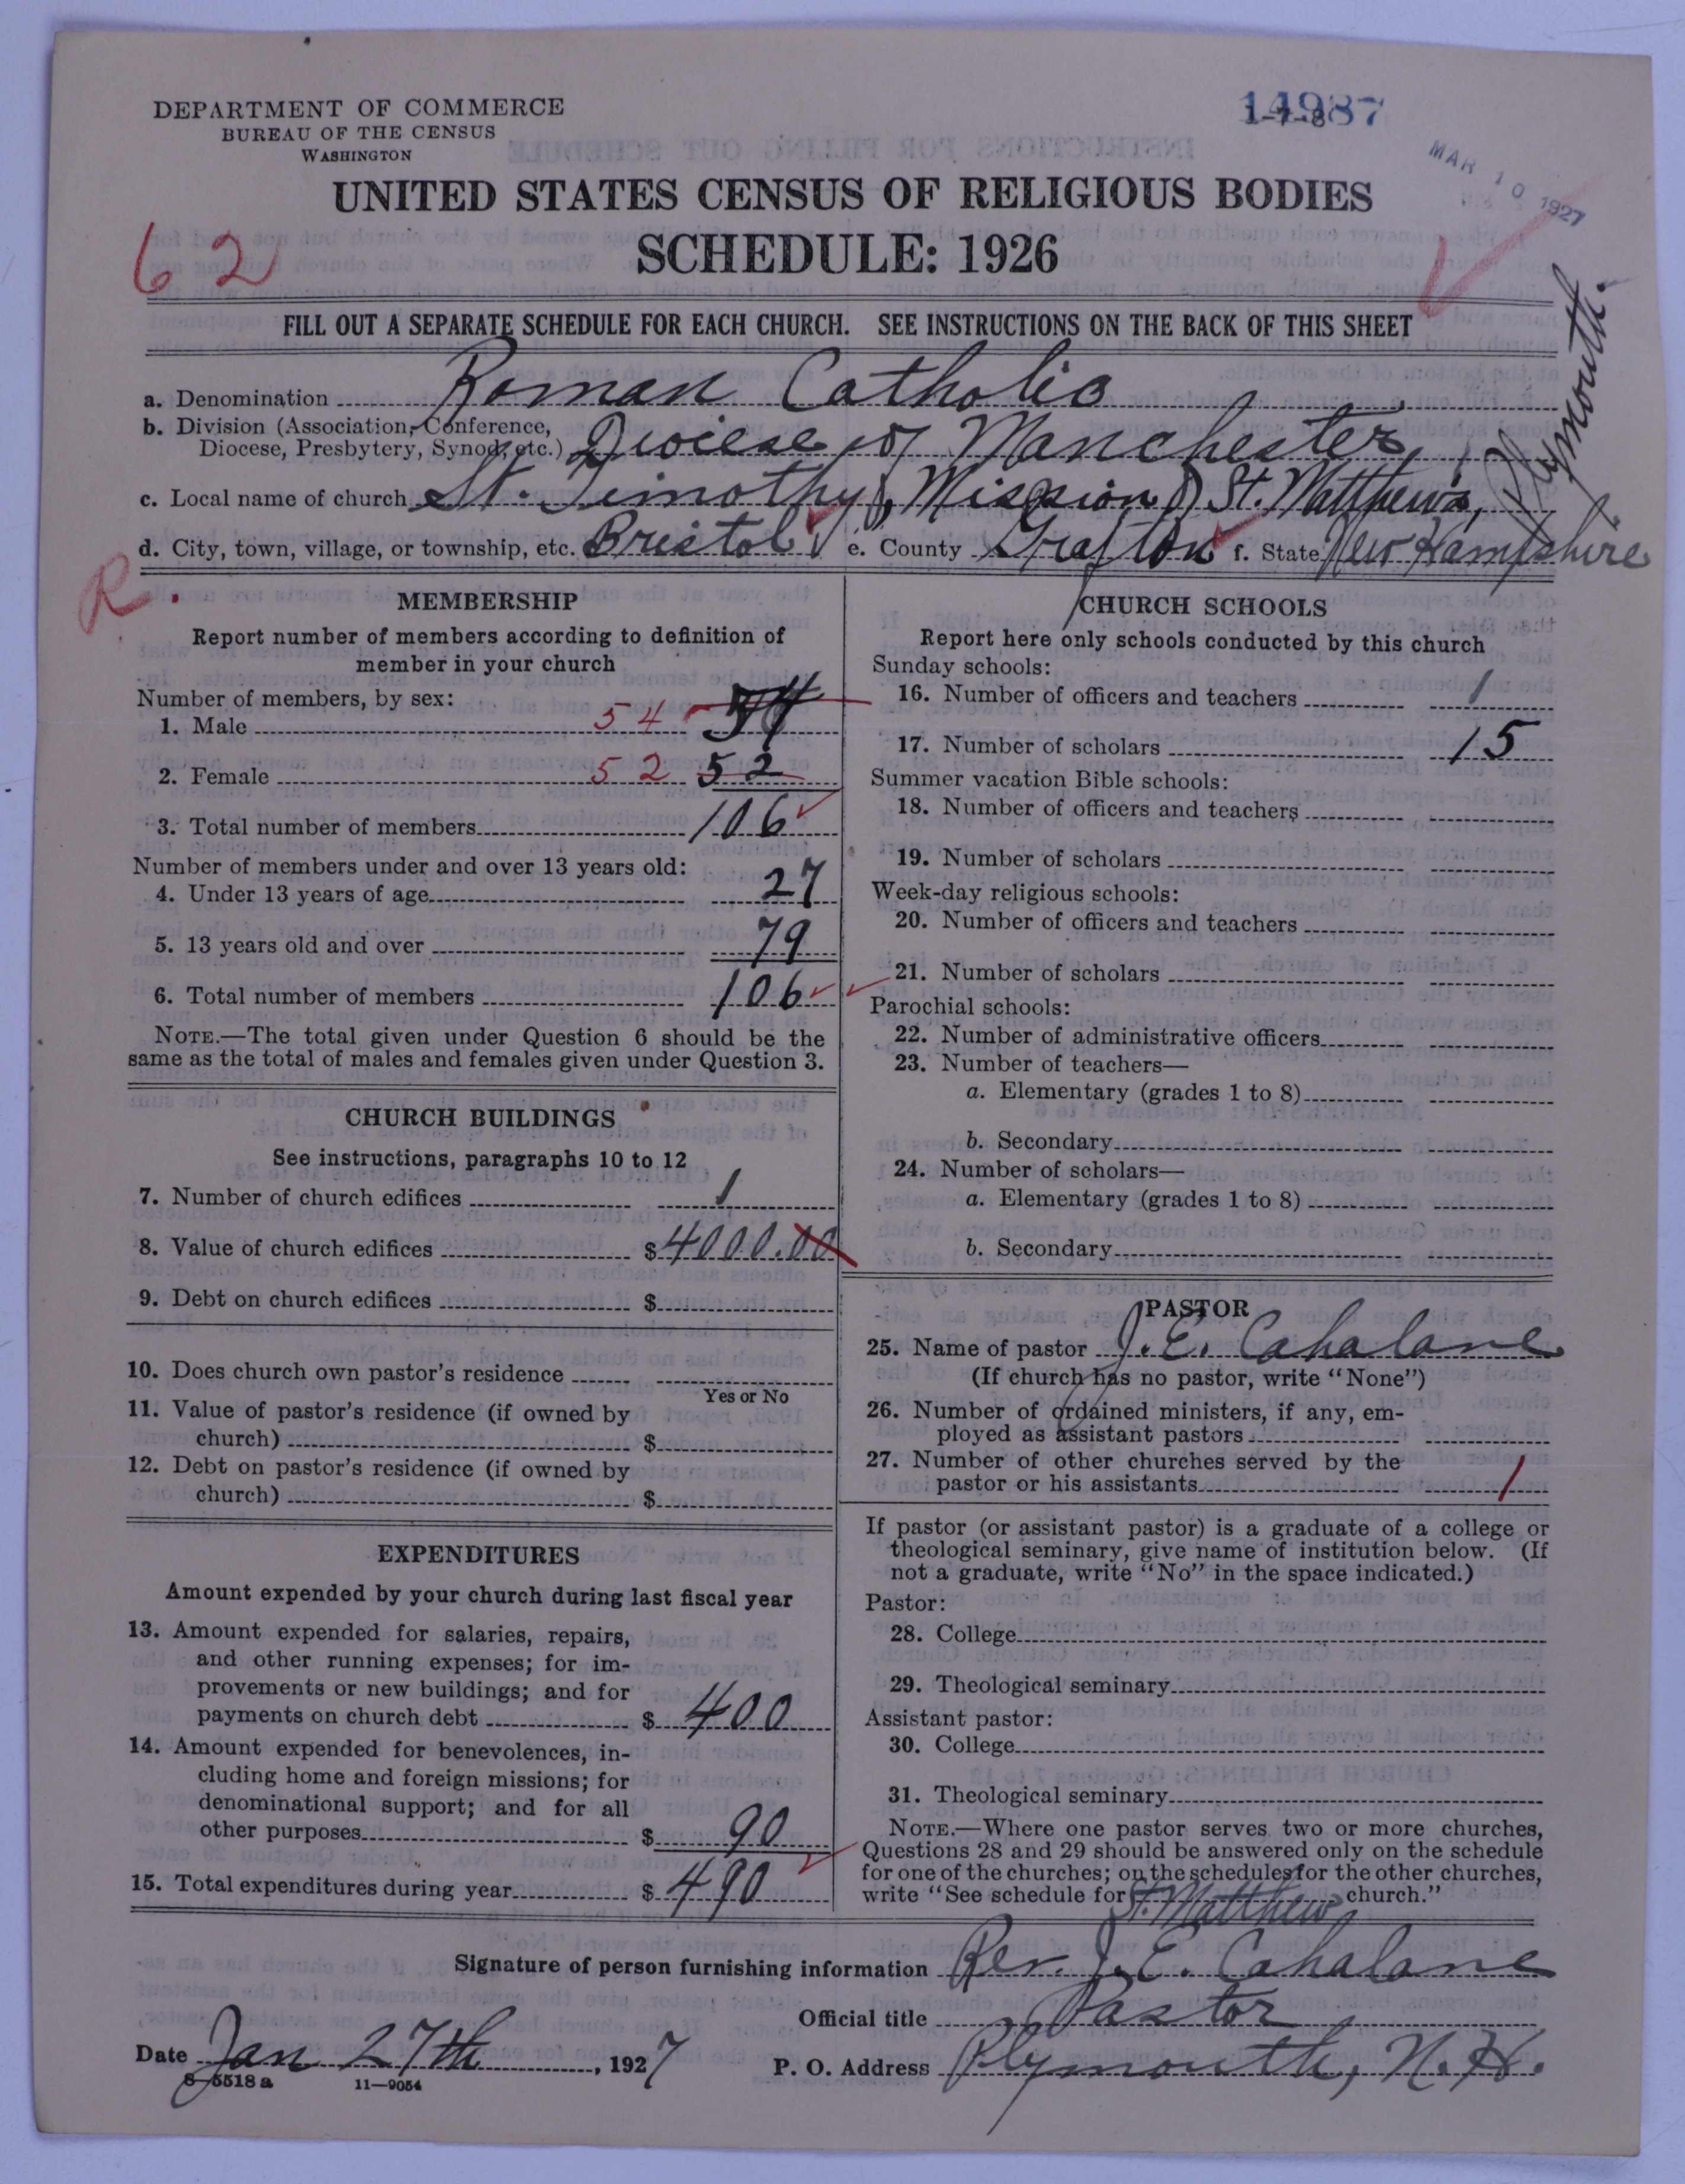 DEPARTMENT OF COMMERCE
BUREAU OF THE CENSUS
WASHINGTON
MAR 10 1927
UNITED STATES CENSUS OF RELIGIOUS BODIES
62
SCHEDULE: 1926
FILL OUT A SEPARATE SCHEDULE FOR EACH CHURCH. SEE INSTRUCTIONS ON THE BACK OF THIS SHEET
a. Denomination Roman Catholic
b. Division (Association, Conference,
Diocese, Presbytery, Synod, etc.) Diocese of Manchester
c. Local name of church St. Timothy (Mission of St. Matthew's, Plymouth.
d. City, town, village, or township, etc. Bristol e. County Grafton f. State New Hampshire
R.
MEMBERSHIP
Report number of members according to definition of
member in your church
Number of members, by sex:
1. Male 54 54
2. Female 52 52
3. Total number of members 106
Number of members under and over 13 years old:
4. Under 13 years of age 27
5. 13 years old and over 79
6. Total number of members 106
NOTE.—The total given under Question 6 should be the
same as the total of males and females given under Question 3.
CHURCH BUILDINGS
See instructions, paragraphs 10 to 12
7. Number of church edifices 1
8. Value of church edifices $4000.00
9. Debt on church edifices $
10. Does church own pastor's residence
Yes or No
11. Value of pastor's residence (if owned by
church) $
12. Debt on pastor's residence (if owned by
church) $
EXPENDITURES
Amount expended by your church during last fiscal year
13. Amount expended for salaries, repairs,
and other running expenses; for im-
provements or new buildings; and for
payments on church debt $ 400
14. Amount expended for benevolences, in-
cluding home and foreign missions; for
denominational support; and for all
other purposes $ 90
15. Total expenditures during year $ 490
CHURCH SCHOOLS
Report here only schools conducted by this church
Sunday schools:
16. Number of officers and teachers 1
17. Number of scholars 15
Summer vacation Bible schools:
18. Number of officers and teachers
19. Number of scholars
Week-day religious schools:
20. Number of officers and teachers
21. Number of scholars
Parochial schools:
22. Number of administrative officers
23. Number of teachers—
a. Elementary (grades 1 to 8)
b. Secondary
24. Number of scholars—
a. Elementary (grades 1 to 8)
b. Secondary
PASTOR
25. Name of pastor J. E. Cahalane
(If church has no pastor, write "None")
26. Number of ordained ministers, if any, em-
ployed as assistant pastors
27. Number of other churches served by the
pastor or his assistants 1
If pastor (or assistant pastor) is a graduate of a college or
theological seminary, give name of institution below. (If
not a graduate, write "No" in the space indicated.)
Pastor:
28. College
29. Theological seminary
Assistant pastor:
30. College
31. Theological seminary
NOTE.—Where one pastor serves two or more churches,
Questions 28 and 29 should be answered only on the schedule
for one of the churches; on the schedules for the other churches,
write "See schedule for St. Matthew church."
Signature of person furnishing information Rev. J. E. Cahalane
Official title Pastor
Date Jan 27th, 1927 P. O. Address Plymouth, N. H.
8—5518 a 11—9054